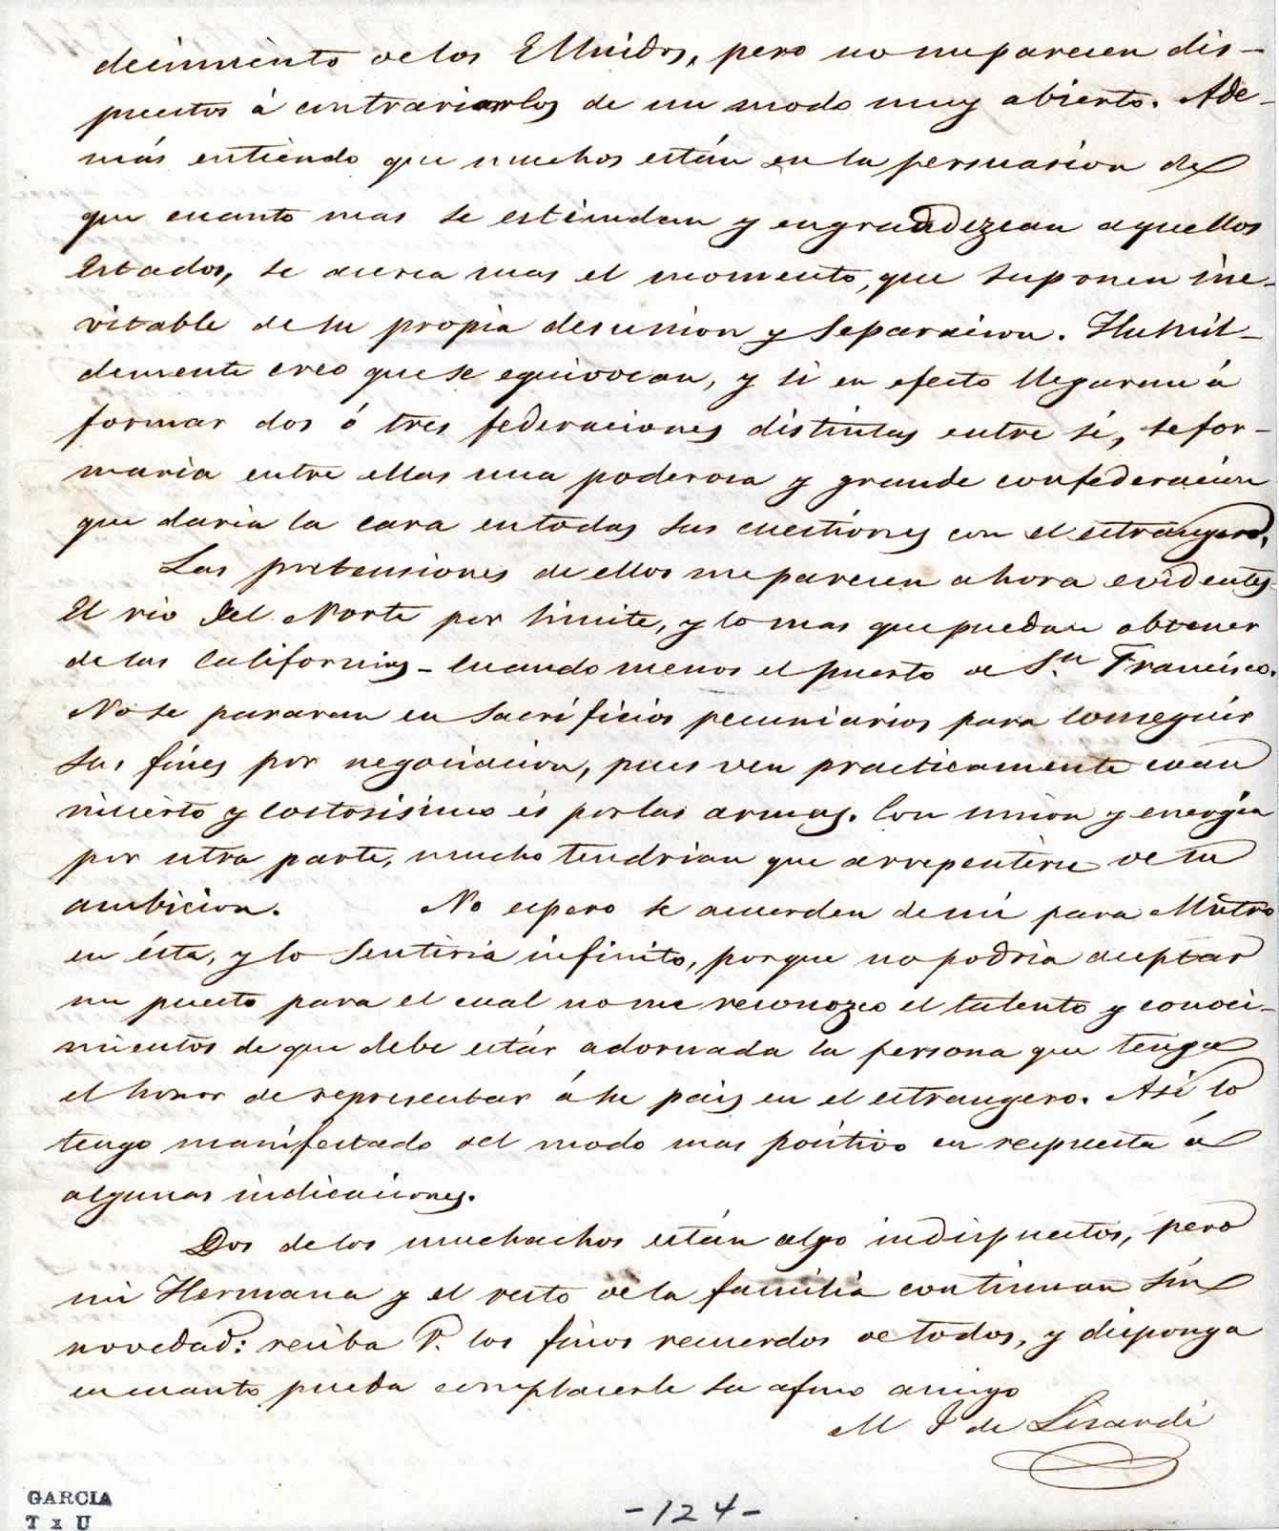 decimiento de los E Unidos, pero no me parecen dis-
puestos á contrariarlos de un modo muy abierto. Ade-
más entiendo que muchos están en la persuasion de
que cuanto mas se estiendan y engrandezcan aquellos
Estados, se acerca mas el momento, que suponen ine-
vitable de su propia desunion y separacion. Humil-
demente creo que se equivocan, y si en efecto llegaran á
formar dos ó tres federaciones distintas entre sí, se for-
maria entre ellas una poderosa y grande confederacion
que daria la cara en todas sus cuestiones con el estrangero.
Las pretensiones de ellos me parecen ahora evidentes
El rio del Norte por limite, y lo mas que puedan obtener
de las Californias - cuando menos el puerto de Sn. Francisco.
No se pararan en sacrificios pecuniarios para conseguir
sus fines por negociacion, pues ven practicamente cuan
incierto y costosisimo es por las armas. Con union y energia
por otra parte, mucho tendrian que arrepentirse de su
ambicion. No espero se acuerden de mi para Mntro
en ésta, y lo sentiria infinito, porque no podria aceptar
un puesto para el cual no me reconozco el talento y conoci-
mientos de que debe estár adornada la persona que tenga
el honor de representar á su pais en el estrangero. Asi lo
tengo manifestado del modo mas positivo en respuesta á
algunas indicaciones.
Dos de los muchachos están algo indispuestos, pero
mi Hermana y el resto de la familia continuan sin
novedad: reciba V. los finos recuerdos de todos, y disponga
en cuanto pueda complacerle su afmo amigo
M J de Lizardi
GARCIA
T x U
-124-